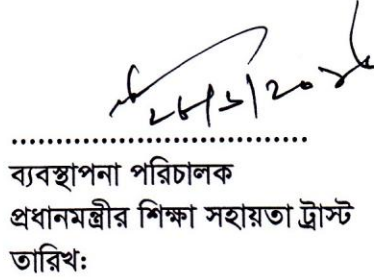 ................................
ব্যবস্থাপনা পরিচালক
প্রধানমন্ত্রীর শিক্ষা সহায়তা ট্রাস্ট
তারিখ: